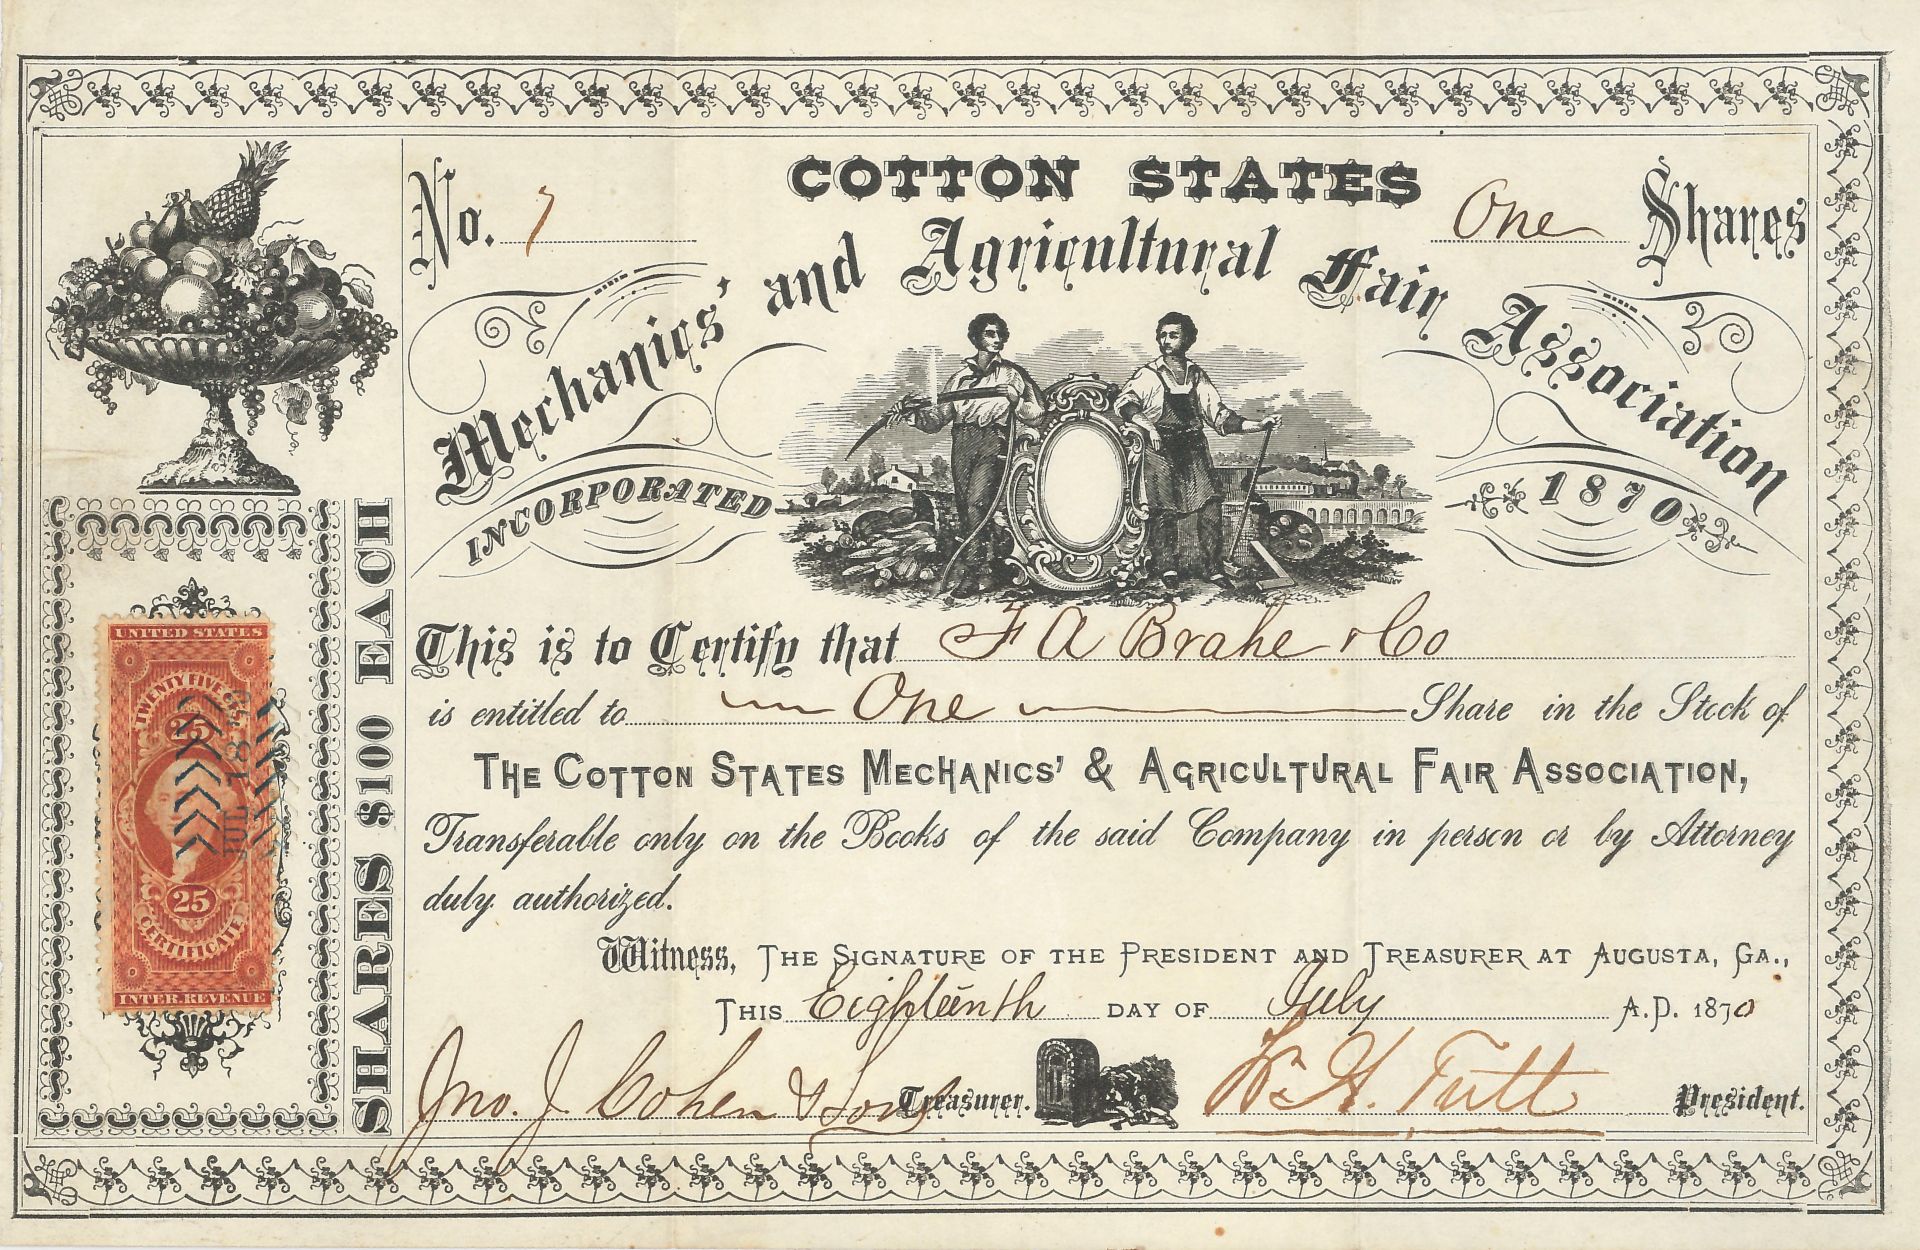 COTTON STATES
No. 7
One Shares
Mechanics' and Agricultural Fair Association
INCORPORATED
1870
This is to Certify that F A Brahe & Co
is entitled to One Share in the Stock of
THE COTTON STATES MECHANICS' & AGRICULTURAL FAIR ASSOCIATION,
Transferable only on the Books of the said Company in person or by Attorney
duly authorized.
Witness, THE SIGNATURE OF THE PRESIDENT AND TREASURER AT AUGUSTA, GA.,
THIS Eighteenth DAY OF July A.D. 1870
Jno. J Cohen & Sons Treasurer.
Wm H. Tutt President.
SHARES $100 EACH
UNITED STATES
TWENTY FIVE
25
JUL 18
25
CERTIFICATE
INTER. REVENUE